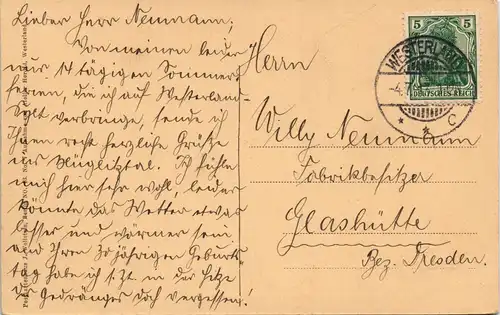 Lieber Herr Neumann;
Von meinen leider
nur 14 tägigen Sommer-
ferien, die ich auf Westerland-
Sylt verbringe, sende ich
Ihnen recht herzliche Grüße
ins Müglitztal. Ich fühle
mich hier sehr wohl, leider
könnte das Wetter etwas
besser und wärmer sein
und Ihren 30 jährigen Geburts-
tag habe ich s. Zt. in der Hitze
des Gedränges doch vergessen!
Herrn
Willy Neumann
Fabrikbesitzer
Glashütte
Bez. Dresden.
5 5
DEUTSCHES REICH
WESTERLAND
-4.7.
* * C